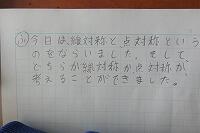 ふ 今日は、線対称と点対称という
のをならいました。そして
どちらが線対称か点対称か
考えることができました。